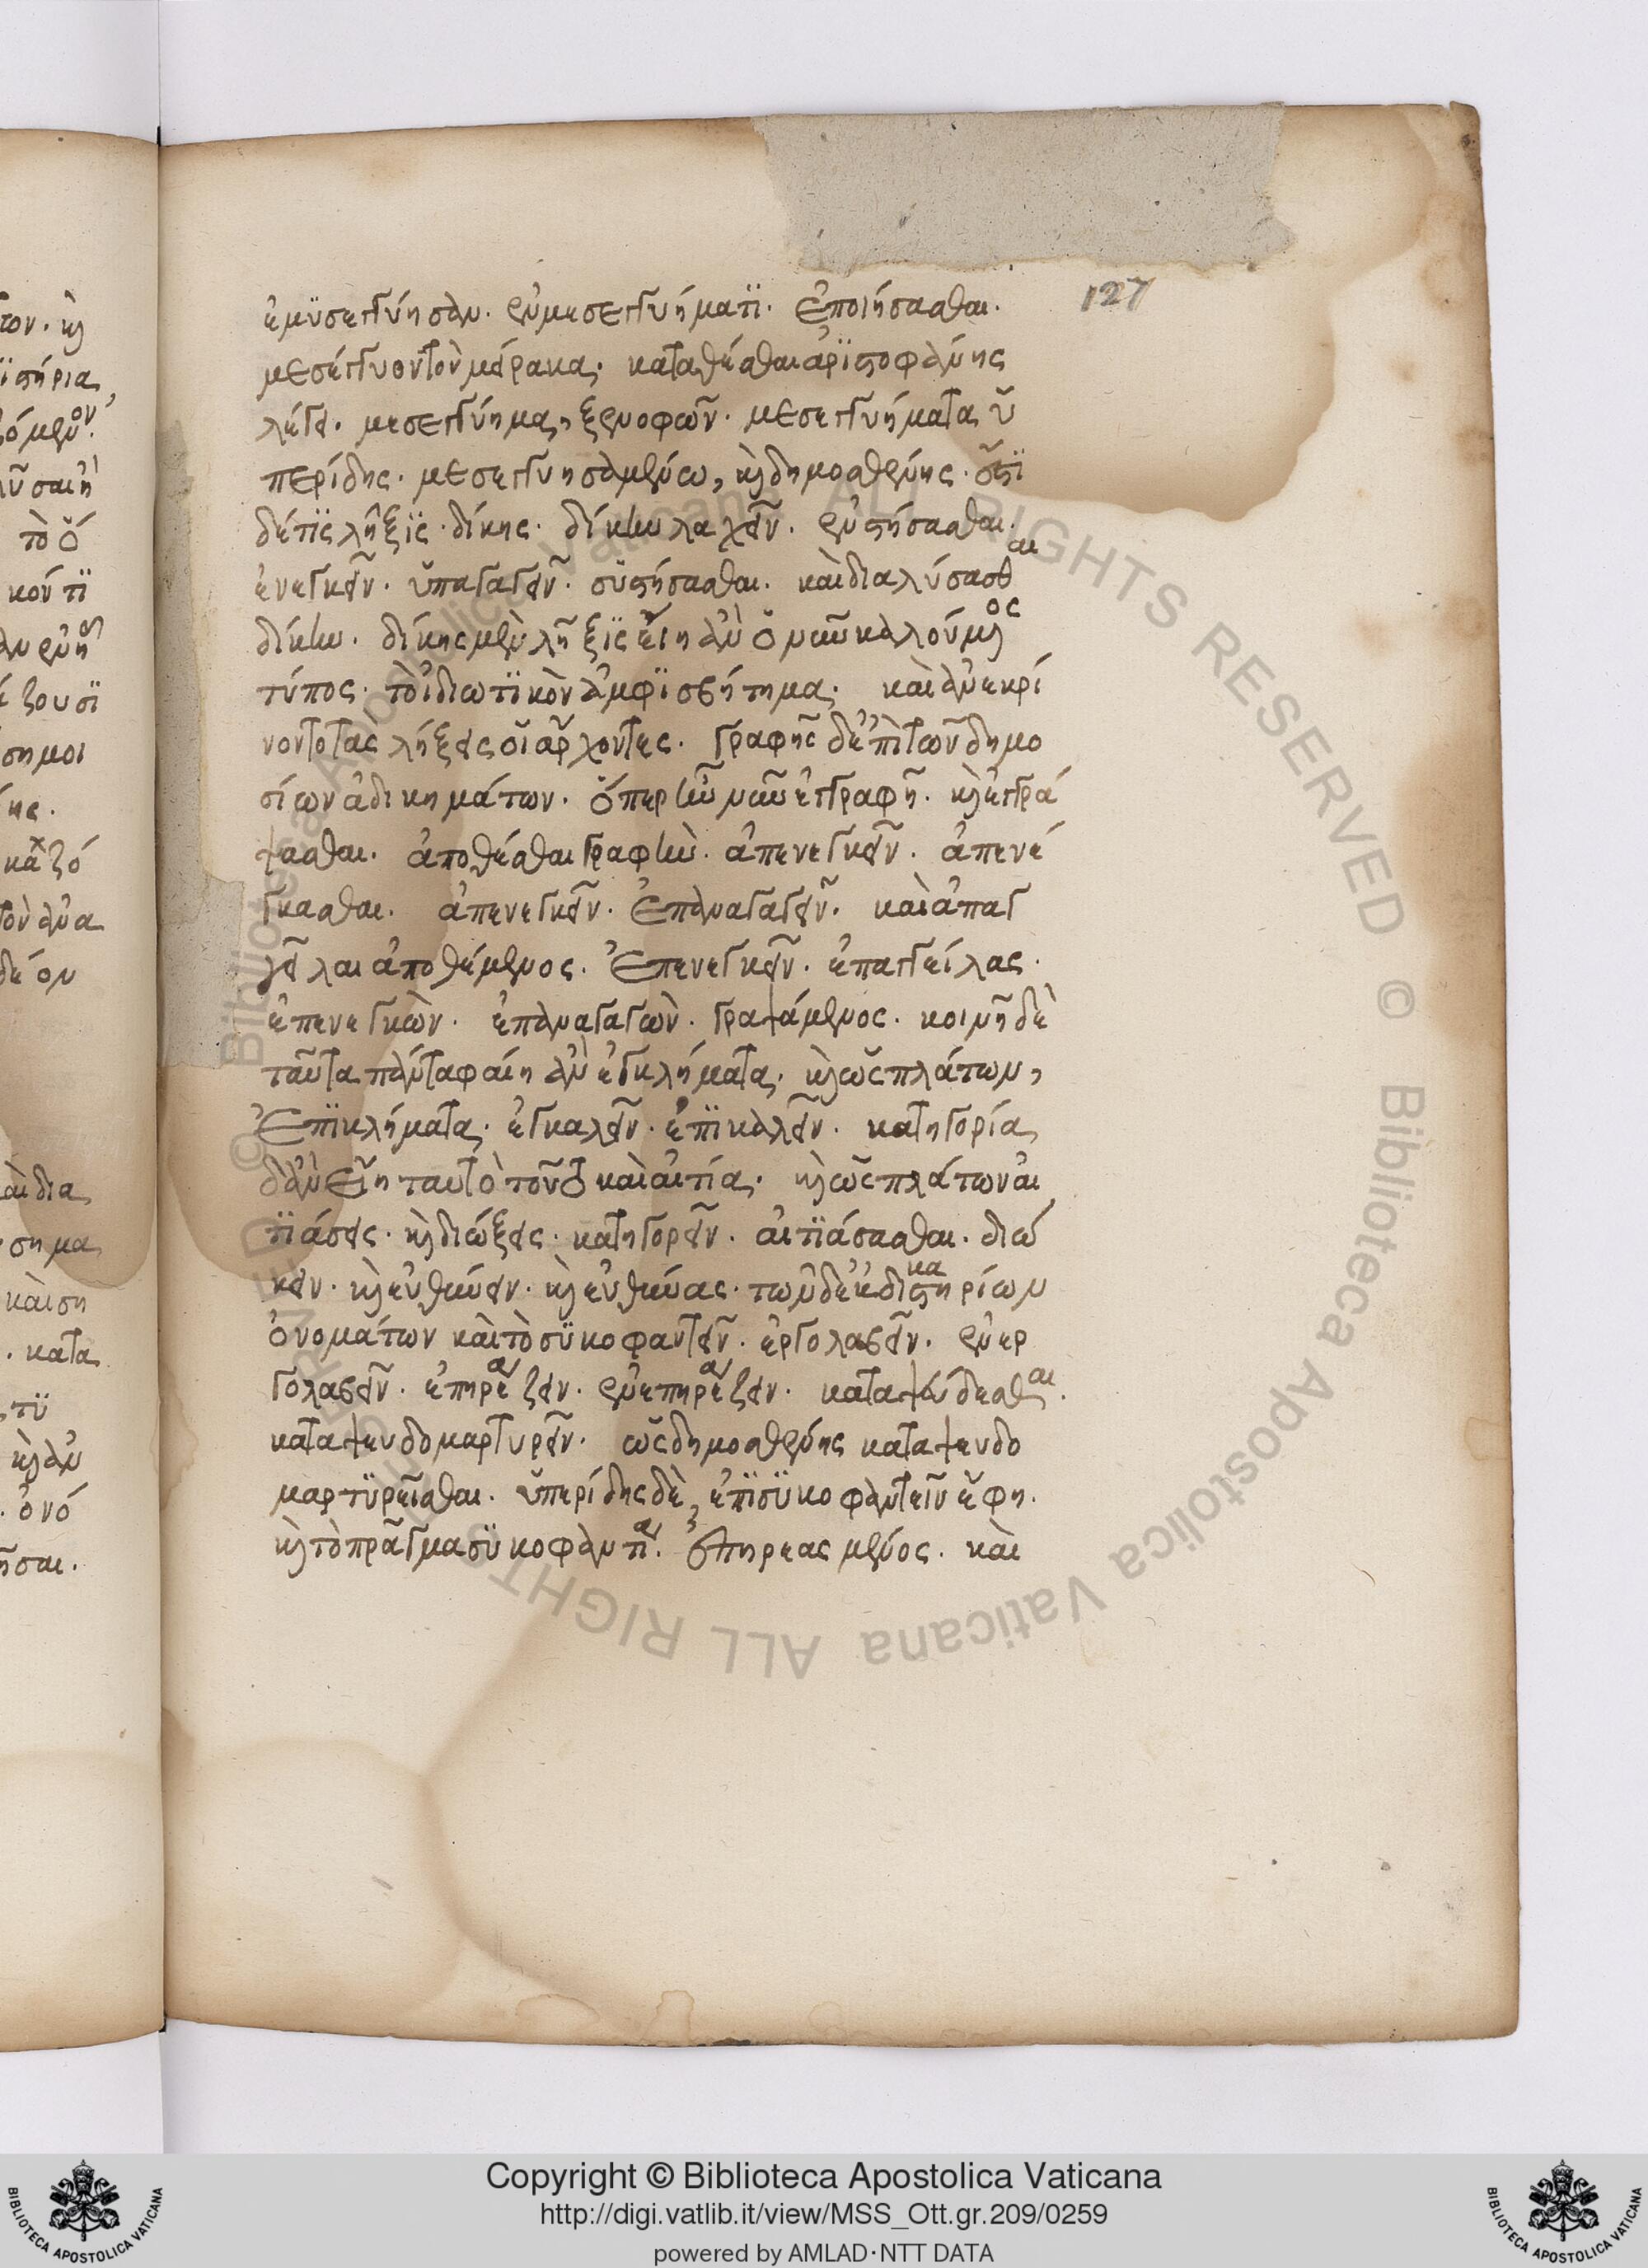 ἐμϋσεγγύησαν. ἐν μεσεγγυήματϊ. ἐποιήσασθαι.
μεσέγγυον τὸν μείρακα. καταθέσθαι ἀρϊστοφάνης
λέγει. μεσεγγύημα, ξενοφῶν. μεσεγγυήματα ὑ
περίδης. μεσεγγυησαμένω, κὶ δημοσθένης. ἔστϊ
δέ τϊς λῆξϊς. δίκης. δίκην λαχεῖν. ἐνστήσασθαι.
ἐνεγκεῖν. ὑπαγαγεῖν. συστήσασθαι. καὶ διαλύσασθαι
δίκην. δίκης μὲν λῆξϊς εἴη ἂν ὁ νῦν καλούμενος
τύπος. τὸ ἰδιωτϊκὸν ἀμφϊσβήτημα. καὶ ἀνεκρί
νοντο τὰς λήξεις οἱ ἄρχοντες. γραφῆς δὲ ἐπὶ τῶν δημο
σίων ἀδικημάτων. ὅπερ ἦν νῦν ἐγγραφῆ. κὶ ἐγγρά
ψασθαι. ἀποθέσθαι γραφήν. ἀπενεγκεῖν. ἀπενέ
γκασθαι. ἀπενεγκεῖν. ἐπαναγαγεῖν. καὶ ἀπαγ
γεῖλαι ἀποθέμενος. ἐπενεγκεῖν. ἐπαγγείλας.
ἐπενεγκὼν. ἐπαναγαγὼν. γραψάμενος. κοινῆ δὲ
ταῦτα πάντα φαίη ἂν ἐγκλήματα. κὶ ὡς πλάτων,
ἐπϊκλήματα. ἐγκαλεῖν. ἐπϊκαλεῖν. κατηγορία
δ' ἂν εἴη ταυτὸ τοῦτο καὶ αἰτία. κὶ ὡς πλάτων αἰ
τϊάσεις. κὶ διώξεις. κατηγορεῖν. αἰτϊάσασθαι. διώ
κειν. κὶ εὐθύνειν. κὶ εὐθύνας. τῶν δὲ ἐκ δικαστηρίων
ὀνομάτων καὶ τὸ σϋκοφαντεῖν. ἐργολαβεῖν. ἐνερ
γολαβεῖν. ἐπηρεάζειν. ἐνεπηρεάζειν. καταψεύδεσθαι.
καταψευδομαρτυρεῖν. ὡς δημοσθένης καταψευδο
μαρτϋρεῖσθαι. ὑπερίδης δὲ, ἐπϊσϋκοφαντεῖν ἔφη.
κὶ τὸ πρᾶγμα σϋκοφαντία. ἐπηρεασμένος. καὶ
127
Copyright © Biblioteca Apostolica Vaticana
http://digi.vatlib.it/view/MSS_Ott.gr.209/0259
powered by AMLAD·NTT DATA